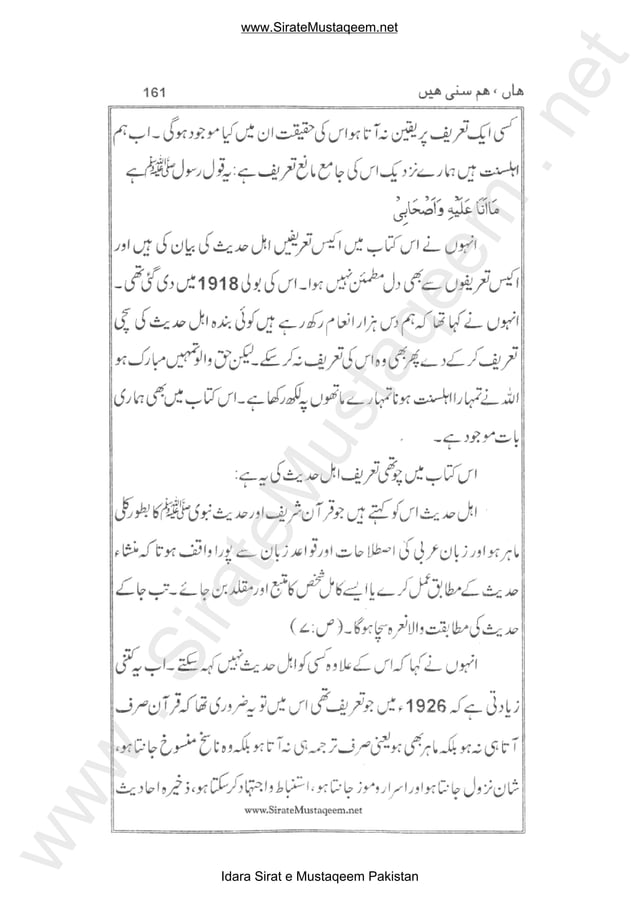 www.SirateMustaqeem.net
ھاں ، ھم سنی ھیں 161
کسی ایک تعریف پر یقین نہ آتا ہو اس کی حقیقت ان میں کیا موجود ہوگی ۔ اب ہم
اہلسنت ہیں ہمارے نزدیک اس کی جامع مانع تعریف ہے : یہ قول رسول ﷺ ہے
مَا اَنَا عَلَیْہِ وَاَصْحَابِیْ
انہوں نے اس کتاب میں اکیس تعریفیں اہل حدیث کی بیان کی ہیں اور
اکیس تعریفوں سے بھی دل مطمئن نہیں ہوا۔ اس کی بولی 1918 میں دی گئی تھی ۔
انہوں نے کہا تھا کہ ہم دس ہزار انعام رکھ رہے ہیں کوئی بندہ اہل حدیث کی سچی
تعریف کر کے دے پھر بھی وہ اس کی تعریف نہ کر سکے۔ لیکن حق والو تمہیں مبارک ہو
اللہ نے تمہارا اہلسنت ہونا تمہارے ماتھوں پہ لکھ رکھا ہے۔ اس کتاب میں بھی ہماری
بات موجود ہے ۔
اس کتاب میں چوتھی تعریف اہل حدیث کی یہ ہے :
اہل حدیث اس کو کہتے ہیں جو قرآن شریف اور حدیث نبوی ﷺ کا بطور کلی
ماہر ہو اور زبان عربی کی اصطلاحات اور قواعد زبان سے پورا واقف ہوتا کہ منشاء
حدیث کے مطابق عمل کرے یا ایسے کامل شخص کا متبع اور مقلد بن جائے ۔ تب جا کے
حدیث کی مطابقت والا نعرہ سچا ہوگا۔ (ص: ۷)
انہوں نے کہا کہ اس کے علاوہ کسی کو اہل حدیث نہیں کہہ سکتے ۔ اب یہ کتنی
زیادتی ہے کہ 1926ء میں جو تعریف تھی اس میں تو یہ ضروری تھا کہ قرآن صرف
آتا ہی نہ ہو بلکہ ماہر بھی ہو یعنی صرف ترجمہ ہی نہ آتا ہو بلکہ وہ ناسخ منسوخ جانتا ہو،
شان نزول جانتا ہو اور اسرار و رموز جانتا ہو، استنباط و اجتہاد کر سکتا ہو، ذخیرہ احادیث
www.SirateMustaqeem.net
Idara Sirat e Mustaqeem Pakistan
www.SirateMustaqeem.net